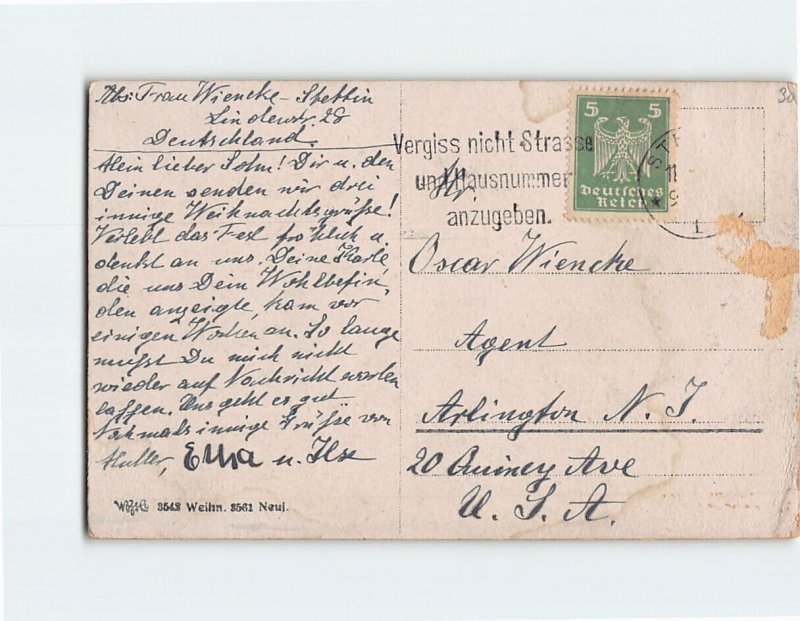 Abs: Frau Wiencke - Stettin
Lindenstr. 28
Deutschland.
Mein lieber Sohn! Dir u. den
Deinen senden wir drei
innige Weihnachtsgrüße!
Verlebt das Fest fröhlich u.
denkt an uns. Deine Karte,
die uns Dein Wohlbefin-
den anzeigte, kam vor
einigen Wochen an. So lange
mußt Du mich nicht
wieder auf Nachricht warten
lassen. Uns geht es gut
Nochmals innige Grüße von
Mutter, Ella u. Ilse
3542 Weihn. 3561 Neuj.
Vergiss nicht Strasse
und Hausnummer
anzugeben.
5 5
Deutsches
Reich
STE
Oscar Wiencke
Agent
Arlington N. J.
20 Quincy Ave
U. S. A.